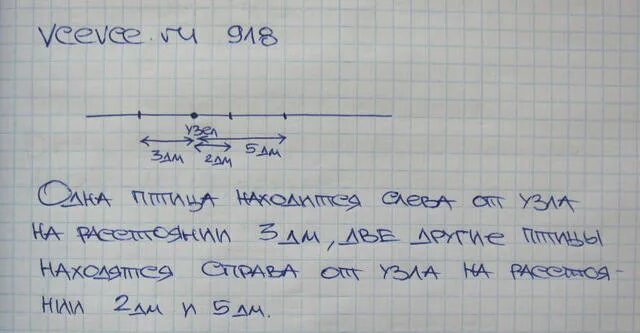 veevee.ru 918
узел
3дм 2дм 5дм
Одна птица находится слева от узла
на расстоянии 3 дм, две другие птицы
находятся справа от узла на расстоя-
нии 2дм и 5дм.